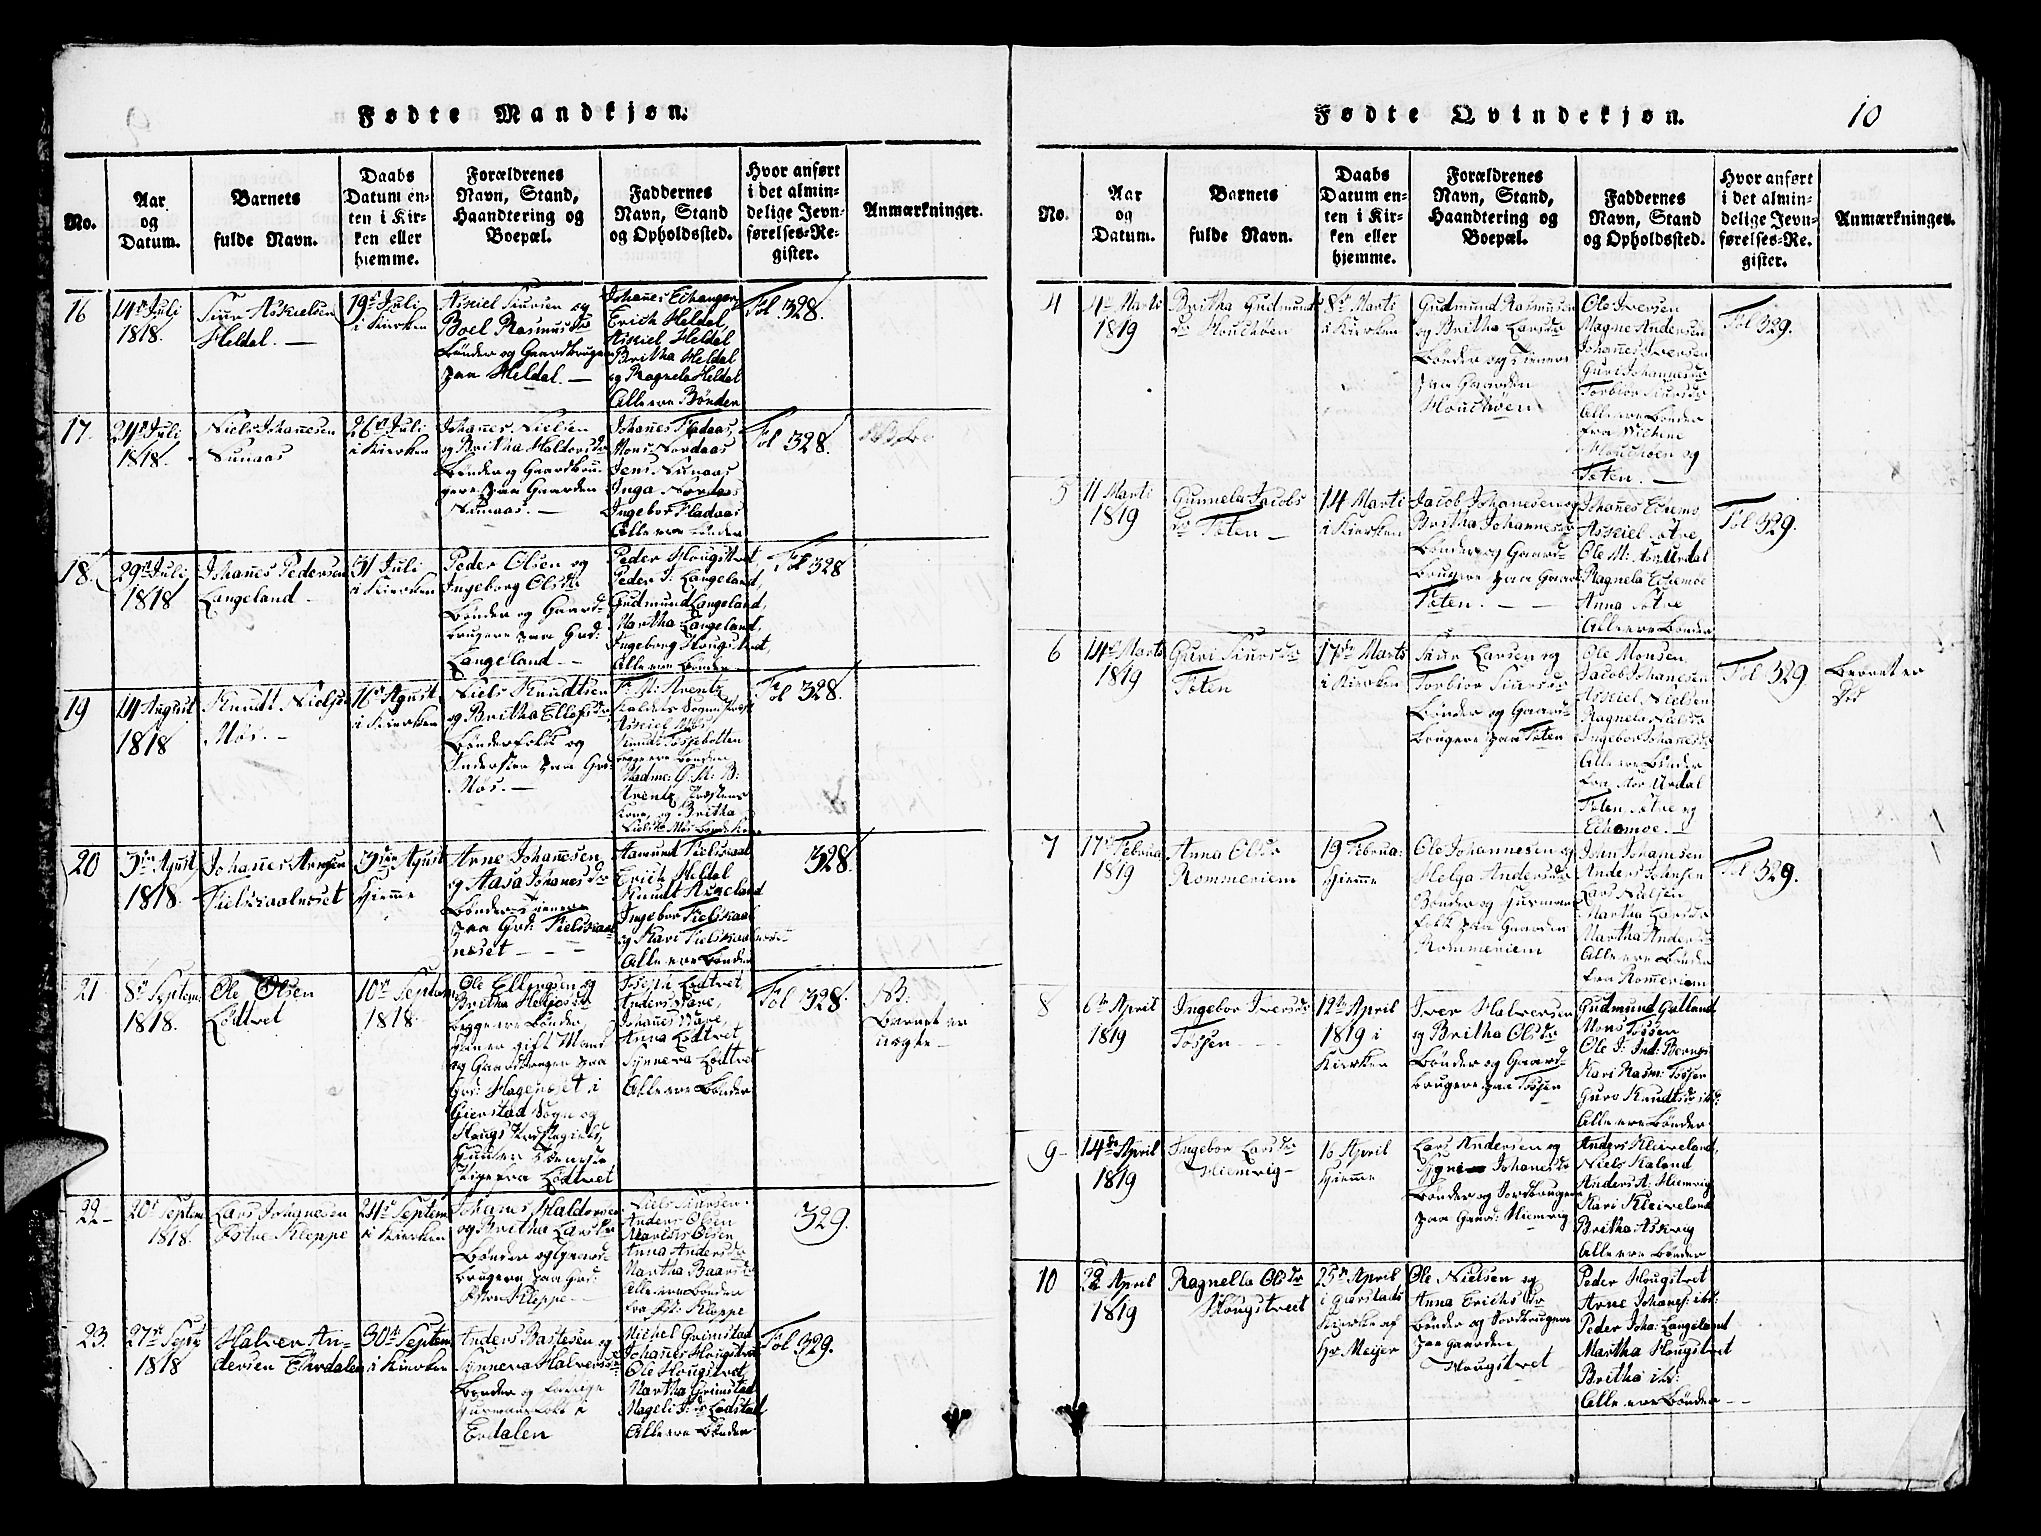 Fødte Mandkjøn.
No.
Aar og Datum.
Barnets fulde Navn.
Daabs Datum enten i Kirken eller hjemme.
Forældrenes Navn, Stand, Haandtering og Boepæl.
Faddernes Navn, Stand og Opholdssted.
Hvor anført i det almindelige Jevnførelses-Register.
Anmærkninger.
16
14de Juli
1818.
Siur Askielsen
Heldal. —
19de Juli
i Kirken
Askiel Siursen og
Boel Rasmusdr
Bønder og Gaardbrugere
paa Heldal. —
Johanes Echanger,
Erich Heldal,
Askiel Heldal
Britha Heldal
og Ragnela Heldal
Alle ere Bønder
Fol 328.
17.
24de Juli
1818.
Niels Johanesen
Sunaas
26de Juli
i Kirken
Johanes Nielsen
og Britha Haldorsdr
Bønder og Gaardbru-
gere paa Gaarden
Sunaas. —
Johanes Fladaas,
Mons Nordaas
Jens Sunaas
Inga Nordaas
Ingebor Fladaas
Alle ere Bønder
Fol 328.
18.
29de Juli
1818
Johanes Pedersen
Langeland
31 Juli
i Kirken
Peder Olsen og
Ingeborg Olsdr
Bønder og Gaard-
brugere paa Grd:
Langeland —
Peder Hougstvet,
Peder J: Langeland,
Gudmund Langeland,
Martha Langeland,
Ingeborg Hougstvet,
Alle ere Bønder
Fol 328
19
14 August
1818
Knudt Nielsen
Møs. —
16de Agust
i Kirken
Niels Knudtsen
og Britha Ellefsdr
Bønderfolk og
Inderster paa Grd:
Møs. —
Arentz
Askiel Møs
Knudt Fossebotten
begge ere Bønder
Arentz
og Britha
Fol 328.
20
3die Agust
1818.
Johanes Arnesen
Fielskaalneset
3die Agust
hjemme
Arne Johanesen
og Aasa Johanesdr
Bønder
paa Grd: Fielskaal
neset — —
Aamund Fielskaal
Erich Heldal
Knudt Augeland
Ingebor Fielskaal
og Kari Fielskaalneset
Alle ere Bønder
328.
21
8de Septem:
1818.
Ole Olsen
Lødtvet
10de Septem
1818.
Ole Ellingsen og
Britha
begge ere Bønder,
han er gift Mand
og Gaardbruger paa
Grd: Hagenset i
Gierstad Sogn og
Hougs Præstegield,
Pige fra Lødtvet
Lødtvet
Anders Mare,
Johanes Mare,
Anna Lødtvet
Synneva Lødtvet
Alle ere Bønder
Fol 328.
NB.
Barnet er
uægte
22 —
20de Septem
1818.
Lars Johanesen
Østre Kleppe
24de Septem
i Kirken
Johanes Haldorsen
og Britha Larsdr
Bønder og Gaard-
brugere paa Grd:
Østre Kleppe —
Niels Siursen
Anders Olsen
Marcus Olsen
Anna Andersdr
Martha Baarsdr
Alle ere Bønder
fra Øst: Kleppe
329.
23.
27de Septr
1818
Halver An-
dersen Erdalen
30te Septem
i Kirken
Anders Bastesen og
Synneva Halversdr
Bønder og fattige
Huusmandsfolk i
Erdalen
Michel Grimstad
Johanes Hougstvet
Ole Hougstvet,
Martha Grimstad
Mageli J: dr Lødstad
Alle ere Bønder
Fol 329.
Fødte Qvindekjøn.
10
No.
Aar og Datum.
Barnets fulde Navn.
Daabs Datum enten i Kirken eller hjemme.
Forældrenes Navn, Stand, Haandtering og Boepæl.
Faddernes Navn, Stand og Opholdssted.
Hvor anført i det almindelige Jevnførelses-Register.
Anmærkninger.
4
4de Marti
1819
Britha Gudmunds
dr Houchøen
8de Marti
i Kirken
Gudmund Rasmusen
og Britha Larsdr
Bønder og Tienere
paa Gaarden
Houchøen
Ole Iversen
Magne Andersen
Johanes Iversen
Guri Johannesdr
Torbior Siursdr
Alle ere Bønder
fra
Houchøen og
Toten. —
Fol 329.
5
11 Marti
1819
Gunnela Jacobs
dr Toten —
14 Marti
i Kirken
Jacob Johanesen og
Britha Johannesdr
Bønder og Gaard-
brugere paa Gaard
Toten. — —
Johanes Echemo
Askiel Sætre
Ole M: Stor Urdal
Ragnela Echemoe
Anna Sætre
Alle ere Bønder
Fol 329.
6
14de Marts
1819
Guri Siursdr
Toten
17de Marts
i Kirken
Siur Larsen og
Torbior Siursdr
Bønder og Gaard-
brugere paa Toten
Ole Monsen
Jacob Johanesen
Askiel Nielsen
Ragnela Nielsdr
Ingebor Johanesdr
Alle ere Bønder
fra Stor Urdal
Toten Sætre og
Echemoe. —
Fol 329
Barnet er
Død
7
17de Februa
1819
Anna Olsdr
Rommeriem
19 Februa:
hjemme
Ole Johannesen og
Helga Andersdr
Bønder og Huusmands
folk paa Gaarden
Rommeriem
John Johannesen
Anders Johnsen
Lars Nielsen
Martha Larsdr
Martha Andersdr
Alle ere Bønder
fra Romeriem
Fol 329.
8
6te April
1819
Ingebor Iversdr
Tossen — —
12te April
1819 i
Kirken
Iver Halversen
og Britha Olsdr
Bønder og Gaard-
brugere paa Tossen
Gudmund Gatland
Mons Tossen
Ole J: Ind: Bernes
Kari Rasm: Tossen
Guro Knudtsdr ibd:
Alle ere Bønder
9 —
14de April
1819
Ingebor Larsdr
Hiemvig —
16 April
hjemme
Lars Andersen og
Johanesdr
Bønder og Jordbrugere
paa Gaard: Hiemvig
Anders Kleiveland,
Niels Kaland
Anders A: Hiemvig
Kari Kleiveland
Britha Askvig
Alle ere Bønder
10
22 April
1819
Ragnella Olsdr
Hougstveet
25de April
i Gierstads
Kierke af
Hr Meijer
Ole Nielsen og
Anna Erichsdr
Bønder og Jordbrugere
paa Gaarden
Hougstvet
Peder Hougstvet
Arne Johanes: ibd:
Peder Joha: Langeland
Martha Hougstvet
Britha ibd:
Alle ere Bønder — —